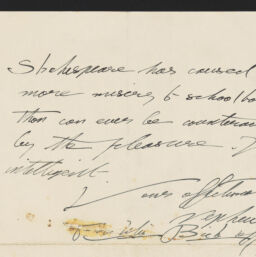 Shakespeare has caused
more misery to schoolbo
than can ever be countera
by the pleasure. I
intelligent.
I
Your affectiona
Bish of